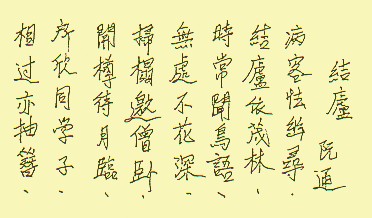 結廬 阮
病客怯幽尋、
結廬依茂林、
時常聞鳥語、
無處不花深、
掃榻邀僧卧、
開樽待月臨、
所欣同学子、
相过亦抽簪、